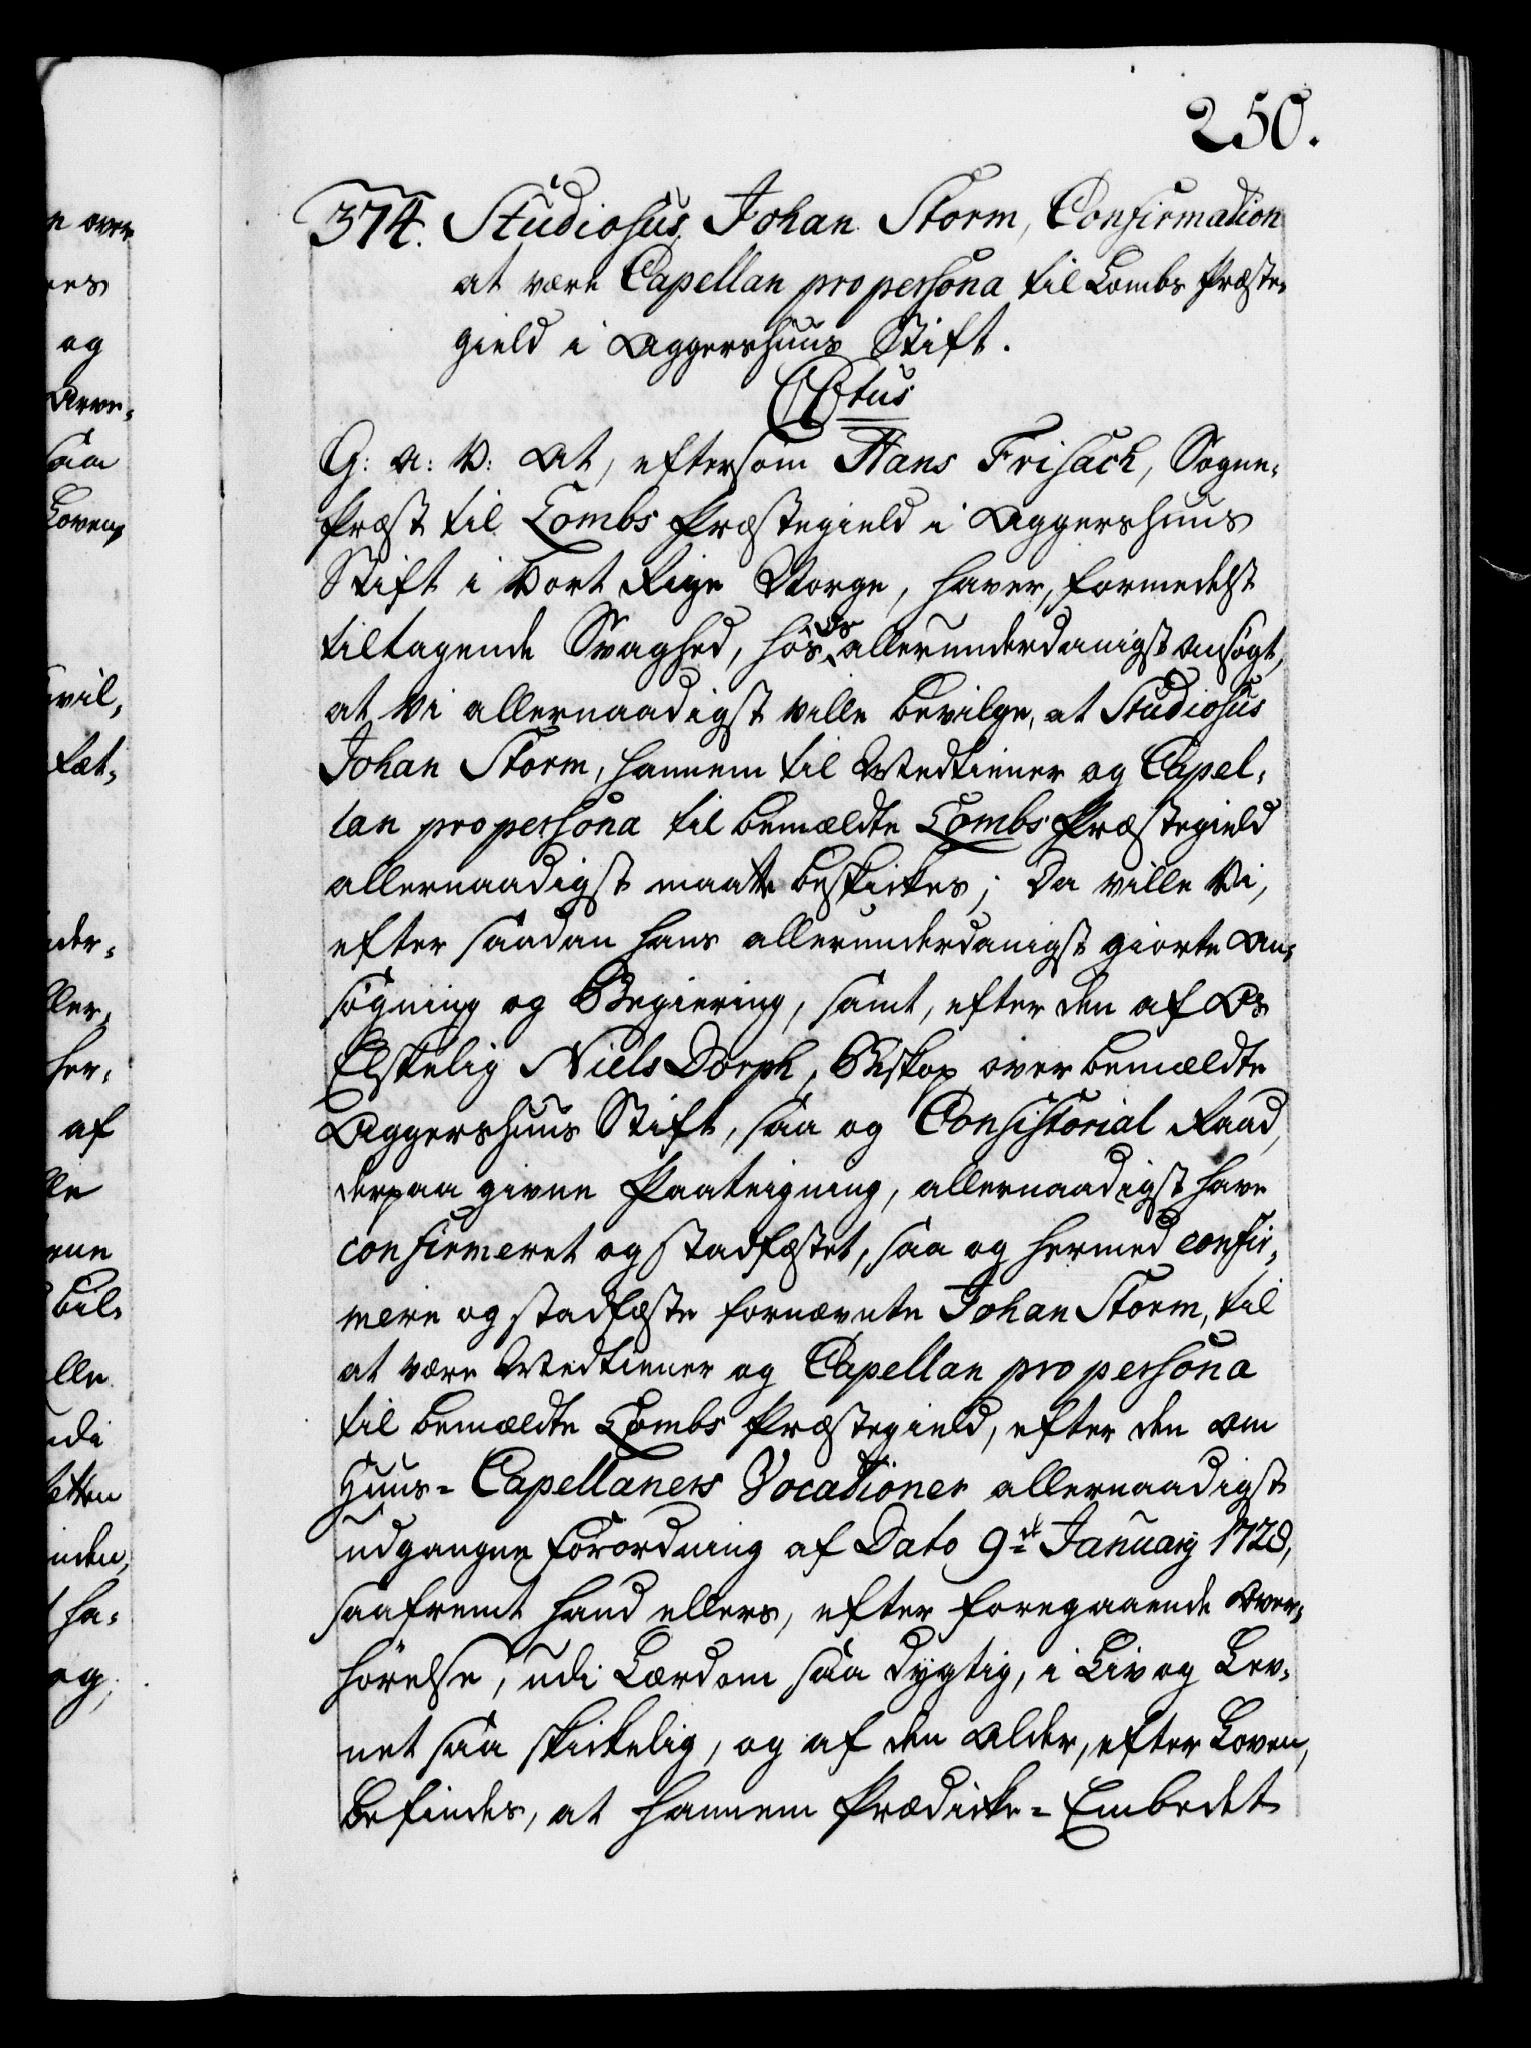 250.
374. Studiosus Johan Storm, Confirmation
at være Capellan pro persona til Lombs Præste-
gield i Aggershuus Stift.
CCtus
G: A: V: At, eftersom Hans Frisach, Sogne-
Præst til Lombs Præstegield i Aggershuus
Stift i Vort Rige Norge, haver, formedelst
tiltagende Svaghed, hos Os allerunderdanigst ansøgt,
at Vi allernaadigst ville bevilge, at Studiosus
Johan Storm, hannem til Medtiener og Capel-
lan pro persona til bemældte Lombs Præstegield
allernaadigst maatte beskickes; Da ville Vi,
efter saadan hans allerunderdanigst giorte An-
søgning og Begiering, samt, efter den af Os
Elskelig Niels Dorph, Biskop over bemældte
Aggershuus Stift, saa og Consistorial Raad,
derpaa givne Paategning, allernaadigst have
confirmeret og stadfæstet, saa og hermed confir-
mere og stadfæste fornævnte Johan Storm, til
at være Medtiener og Capellan pro persona
til bemældte Lombs Præstegield, efter den om
Huus-Capellaners Vocationer allernaadigst
udgangne Forordning af Dato 9de January 1728,
saafremt hand ellers, efter foregaaende Over-
hørelse, udi Lærdom saa dygtig, i Liv og Lev-
net saa skickelig, og af den Alder, efter Loven,
befindes, at hannem Prædicke-Embedet
n over
og
Arve-
saa
Loven,
vil,
fæt-
nder-
ller,
her-
af
lle
bil-
lle
udi
nden,
ha-
og,